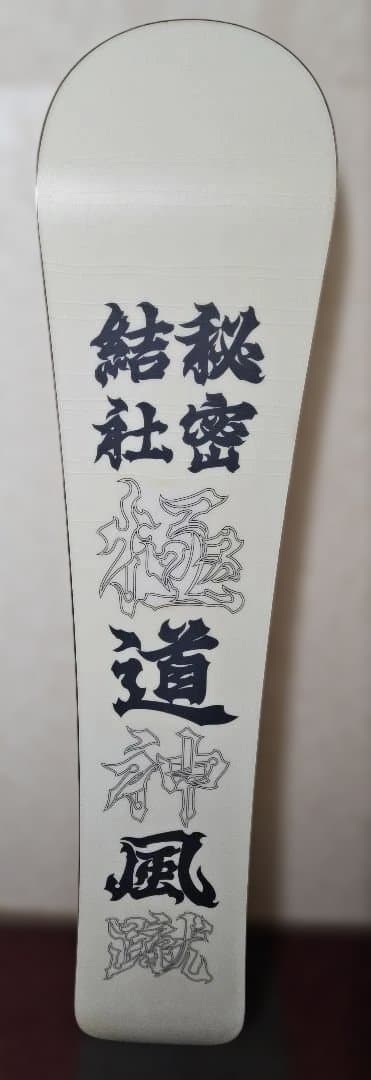 秘密
結社
極
道
神
風
蹴